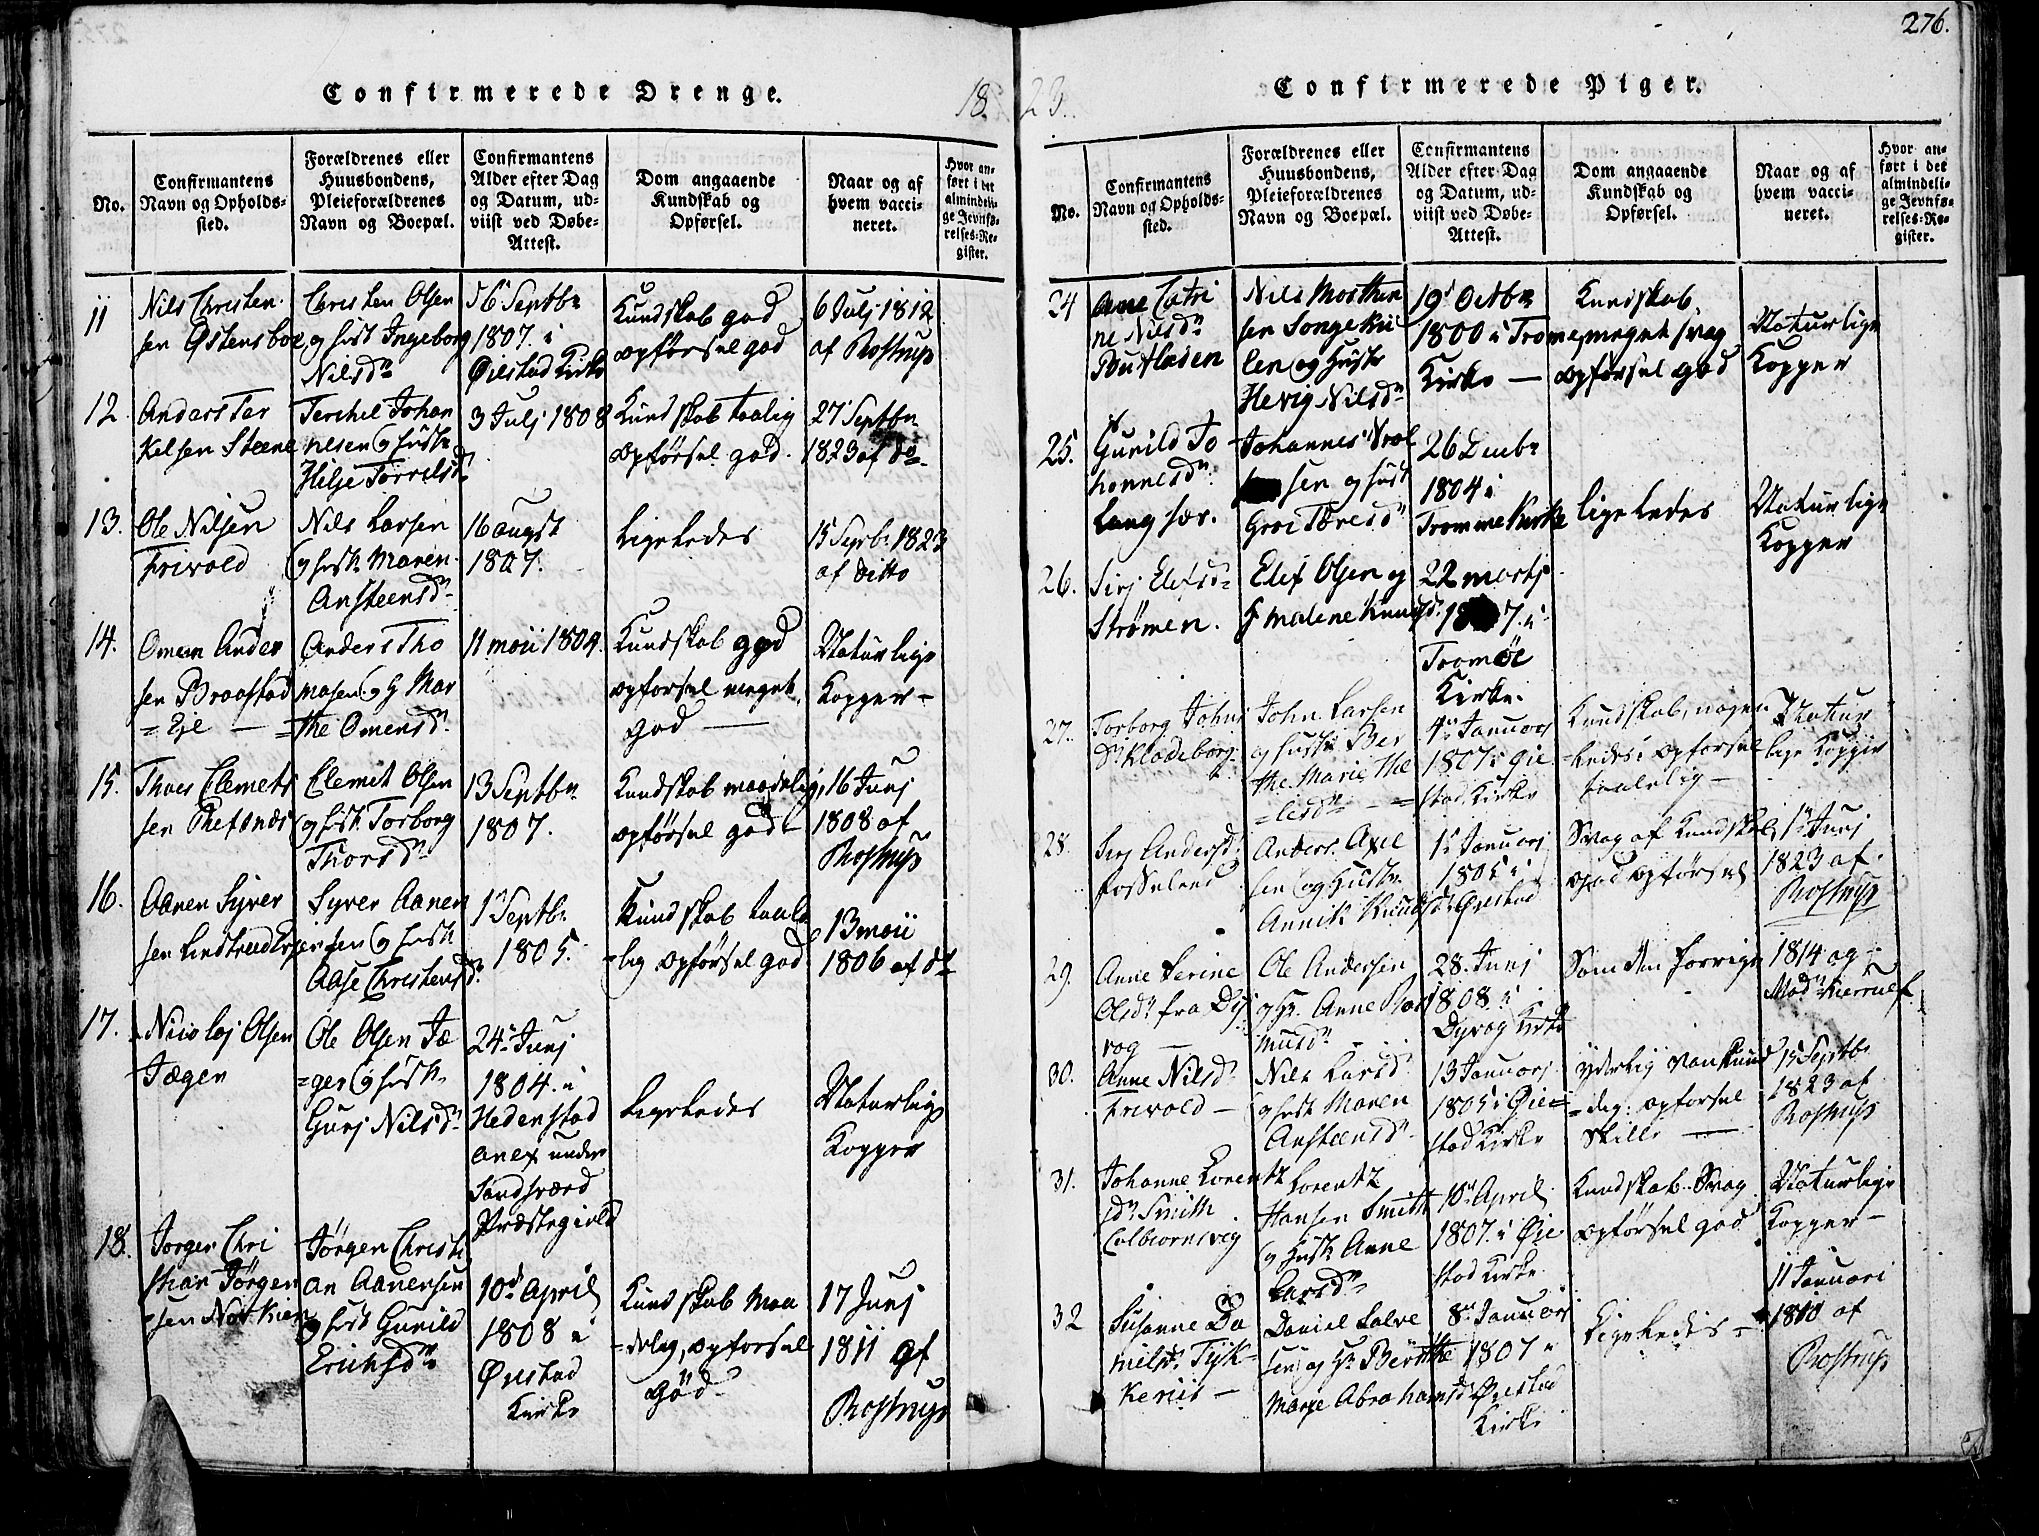 276.
Confirmerede Drenge.
18
No.
Confirmantens
Navn og Opholds-
sted.
Forældrenes eller
Huusbondens,
Pleieforældrenes
Navn og Boepæl.
Confirmantens
Alder efter Dag
og Datum, ud-
viist ved Døbe-
Attest.
Dom angaaende
Kundskab og
Opførsel.
Naar og af
hvem vacci-
neret.
Hvor an-
ført i det
almindeli-
ge Jevnfø-
relses-Re-
gister.
11
Nils Christen
sen Østensboe
Christen Olsen
og hust Ingeborg
Nilsdr
Septbr
1807. i
Øiestad Kirke
Kundskab god
opførsel god
6 Julj 1812
af Rostrup
12
Anders Ter
kelsen Steene
Terchel Johan
nesen og hustr
Helje Torrelsd
3 Julj 1808
Kundskab taalig
opførsel god.
27 Septbr
1823 af do
13.
Ole Nilsen
Trivold
Nils Larsen
og hustr Maren
Ansteensdr
16 augst
1807.
Ligeledes
15 Septbr 1823
af ditto
14.
Omen Ander
sen Braastad
= Eje
Anders Tho
masen og H Mar
the Omensdr
11 maii 1804.
Kundskab god
opforsel meget
god
Naturlige
Kopper
15.
Thoer Clemets
sen Refsnes
Clemet Olsen
og hustr Torborg
Thorsdr
13 Septbr
1807.
Kundskab maadelig,
opførsel god
16 Junj
1808 af
Rostrup
16.
Aanen Syver
sen
Syver Aanen
sen og hustr
Aase Christensd
1 Septbr
1805.
Kundskab taale
lig opførsel god
13 maii
1806 af do
17.
Nicolaj Olsen
Jæger
Ole Olsen Jæ
=ger og hustr
Gurj Nilsdr
24 Junj
1804. i
Hedenstad
anex under
Sandsværd
Præstegield
Ligeledes
Naturlige
Kopper
18.
Jørgen Chri
stian Jørgen
sen
Jørgen Christi
an Aanensen
og hust Gunild
Erichsdr
10d April
1808 i
Øiestad
Kirke
Kundskab Maa
delig, opforsel
God
17 Junj
1811 af
Rostrup
Confirmerede Piger.
23.
No.
Confirmantens
Navn og Opholds-
sted.
Forældrenes eller
Huusbondens,
Pleieforældrenes
Navn og Boepæl.
Confirmantens
Alder efter Dag
og Datum, ud-
viist ved Døbe-
Attest.
Dom angaaende
Kundskab og
Opførsel.
Naar og af
hvem vacci-
neret.
Hvor an-
ført i det
almindeli-
ge Jevnfø-
relses-Re-
gister.
24
Anne Catri
ne Nilsdr
Nils Morthen
sen Songe Ki
len og hustr
Hevig Nilsdr
19 Octbr
1800 i Tromø
Kirke
Kundskab
meget svag
opførsel god
Naturlige
Kopper
25.
Gunild Jo
hannesdr
Langsæe.
Johannes
sen og hust
Groe Tøresdr
26 Decmbr
1804 i
Tromme Kirke
ligeledes
Naturlige
Kopper
26.
Sirj Elefsdr
Strømen.
Elef Olsen og
H Malene Knudsd.
22 martj
i
Tromøe
Kirke.
27.
Torborg Johns
dr Klodeborg
John Larsen
og hustr Ber
the Marie
4 Januarj
1807 i Øie
stad Kirke
Kundskab, nogen
ledes opforsel
taalelig
Natur
lige Kopper
28.
Sirj Andersdr
Fosselund
Anders Axel
sen og Hustr
Annik Knudsd
1 Januarj
1805 i
Øiestad
Svag af Kundskab
god opførsel
1 Junj
1823 af
Rostrup
29.
Anne Serine
Olsdr fra Dy
vog
Ole Andersen
og Hr. Anne Ras
musdr
28. Junj
1808 i
Dyvog Kirke
Som den forrige
1814 og
30.
Anne Nilsdr
Trivold
Nils Larsd
og hust Maren
Ansteensdr
13 Januarj
1805 i Øie
stad Kirke
yderlig vankund
=dig: opforsel
skille
15 Septbr
1823 af
Rostrup
31.
Johanne Lorentz
sdr Smith
Colbiørnsvig
Lorentz
Hansen Smith
og Hustr Anne
Larsdr
10 April
1807. i Øie
stad Kirke
Kundskab Svag
opførsel god
Naturlige
Kopper
32
Susanne Da
nielsdr
Daniel Salve
sen og Hr Berthe
Marje Abrahamsd
8 Januarj
1807 i
Øiestad
Kirke
Ligeledes
11 Januari
1810 af
Rostrup